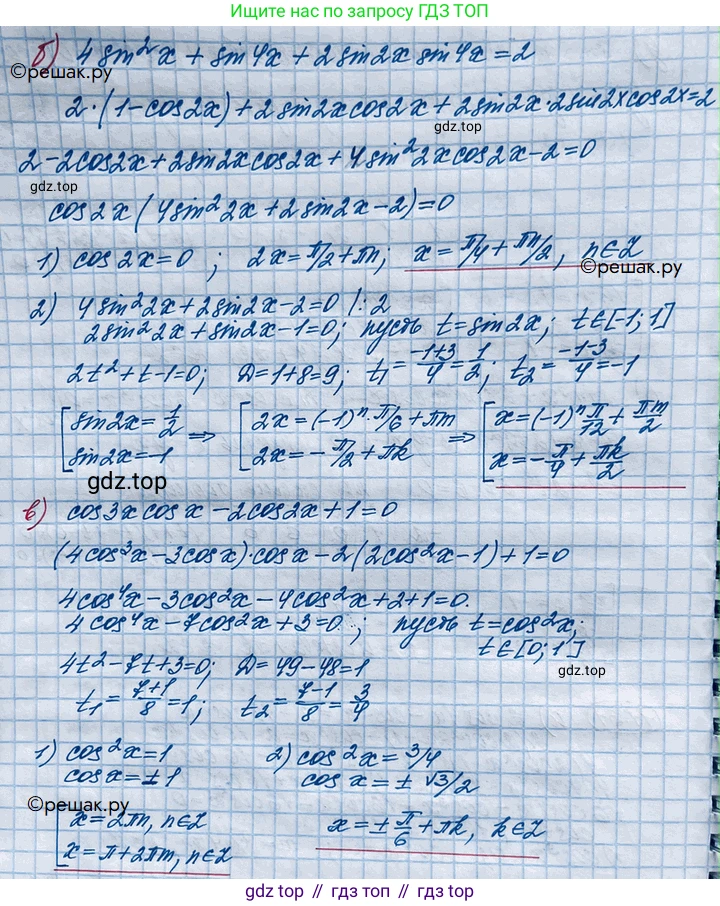 Ищите нас по запросу ГДЗ ТОП
б) 4 sin²x + sin4x + 2 sin2x sin4x = 2
©решак.ру
2·(1-cos2x) + 2 sin2x cos2x + 2sin2x·2sin2x cos2x = 2
gdz.top
2-2cos2x + 2sin2x cos2x + 4sin²2x cos2x - 2 = 0
gdz.top
cos2x (4sin²2x + 2sin2x - 2) = 0
1) cos2x = 0 ; 2x = π/2 + πn; x = π/4 + πn/2, n∈Z
©решак.ру
2) 4sin²2x + 2sin2x - 2 = 0 /: 2
2sin²2x + sin2x - 1 = 0; пусть t = sin2x; t∈[-1; 1]
2t² + t - 1 = 0; D = 1+8 = 9; t₁ = (-1+3)/4 = 1/2; t₂ = (-1-3)/4 = -1
[ sin2x = 1/2 ⇒ [ 2x = (-1)ⁿ·π/6 + πm ⇒ [ x = (-1)ⁿ π/12 + πm/2
sin2x = -1 2x = -π/2 + πk x = -π/4 + πk/2
gdz.top
в) cos3x cosx - 2cos2x + 1 = 0
(4cos³x - 3cosx)·cosx - 2(2cos²x - 1) + 1 = 0
4cos⁴x - 3cos²x - 4cos²x + 2 + 1 = 0.
4cos⁴x - 7cos²x + 3 = 0 ; пусть t = cos²x;
t∈[0; 1]
4t² - 7t + 3 = 0; D = 49 - 48 = 1
gdz.top
t₁ = (7+1)/8 = 1; t₂ = (7-1)/8 = 3/4
1) cos²x = 1 2) cos²x = 3/4
cosx = ±1 cosx = ± √3/2
©решак.ру
[ x = 2πn, n∈Z x = ± π/6 + πk, k∈Z
x = π + 2πm, n∈Z
gdz.top
gdz top // гдз топ // gdz.top